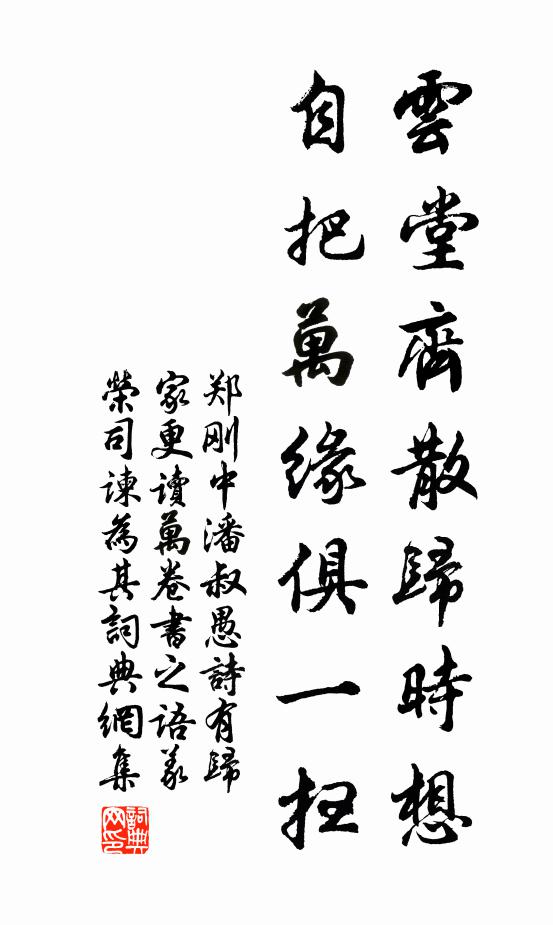 雲堂齋散歸時想
自把萬緣俱一抂
郑刚中潘叔愚詩有歸
家更讀萬卷書之語義
榮司諫為其詞典網集
詞典网印